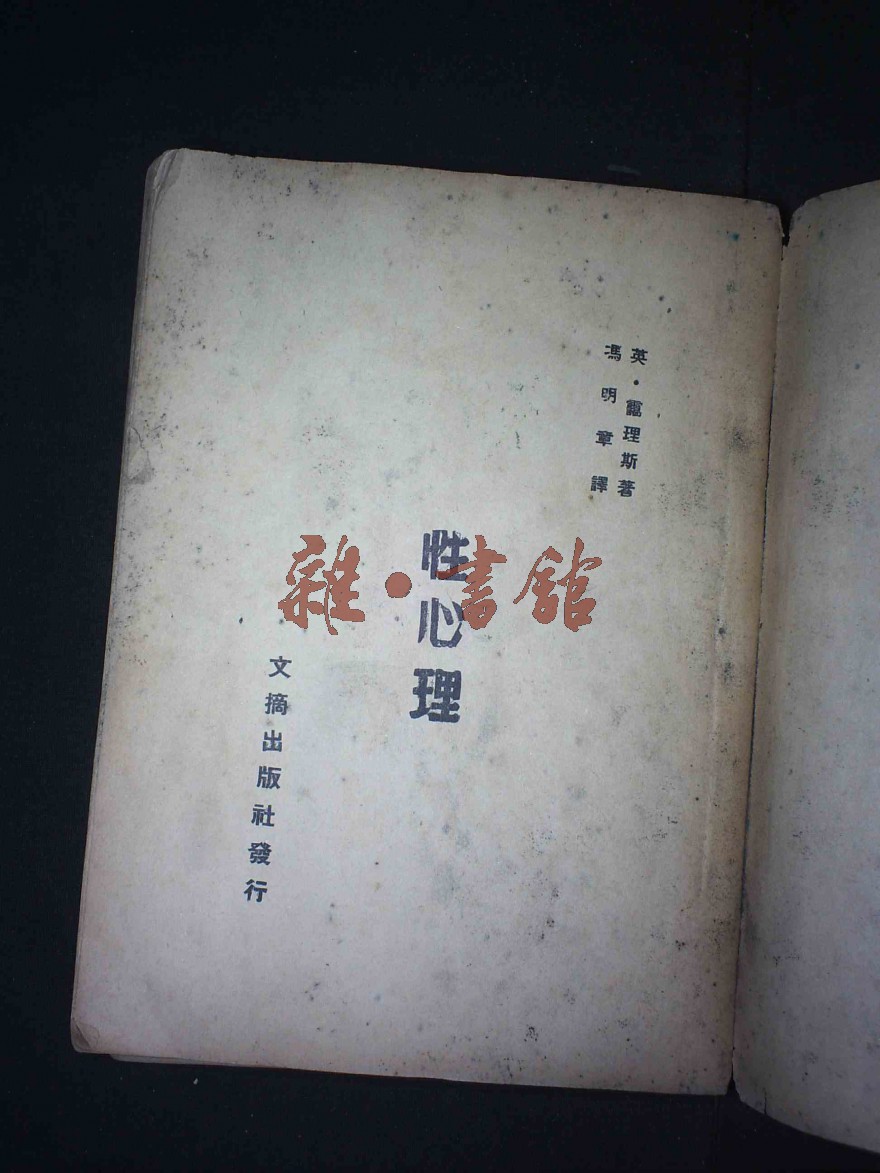 英·靄理斯著
馮明章譯
性心理
文摘出版社發行
雜·書館